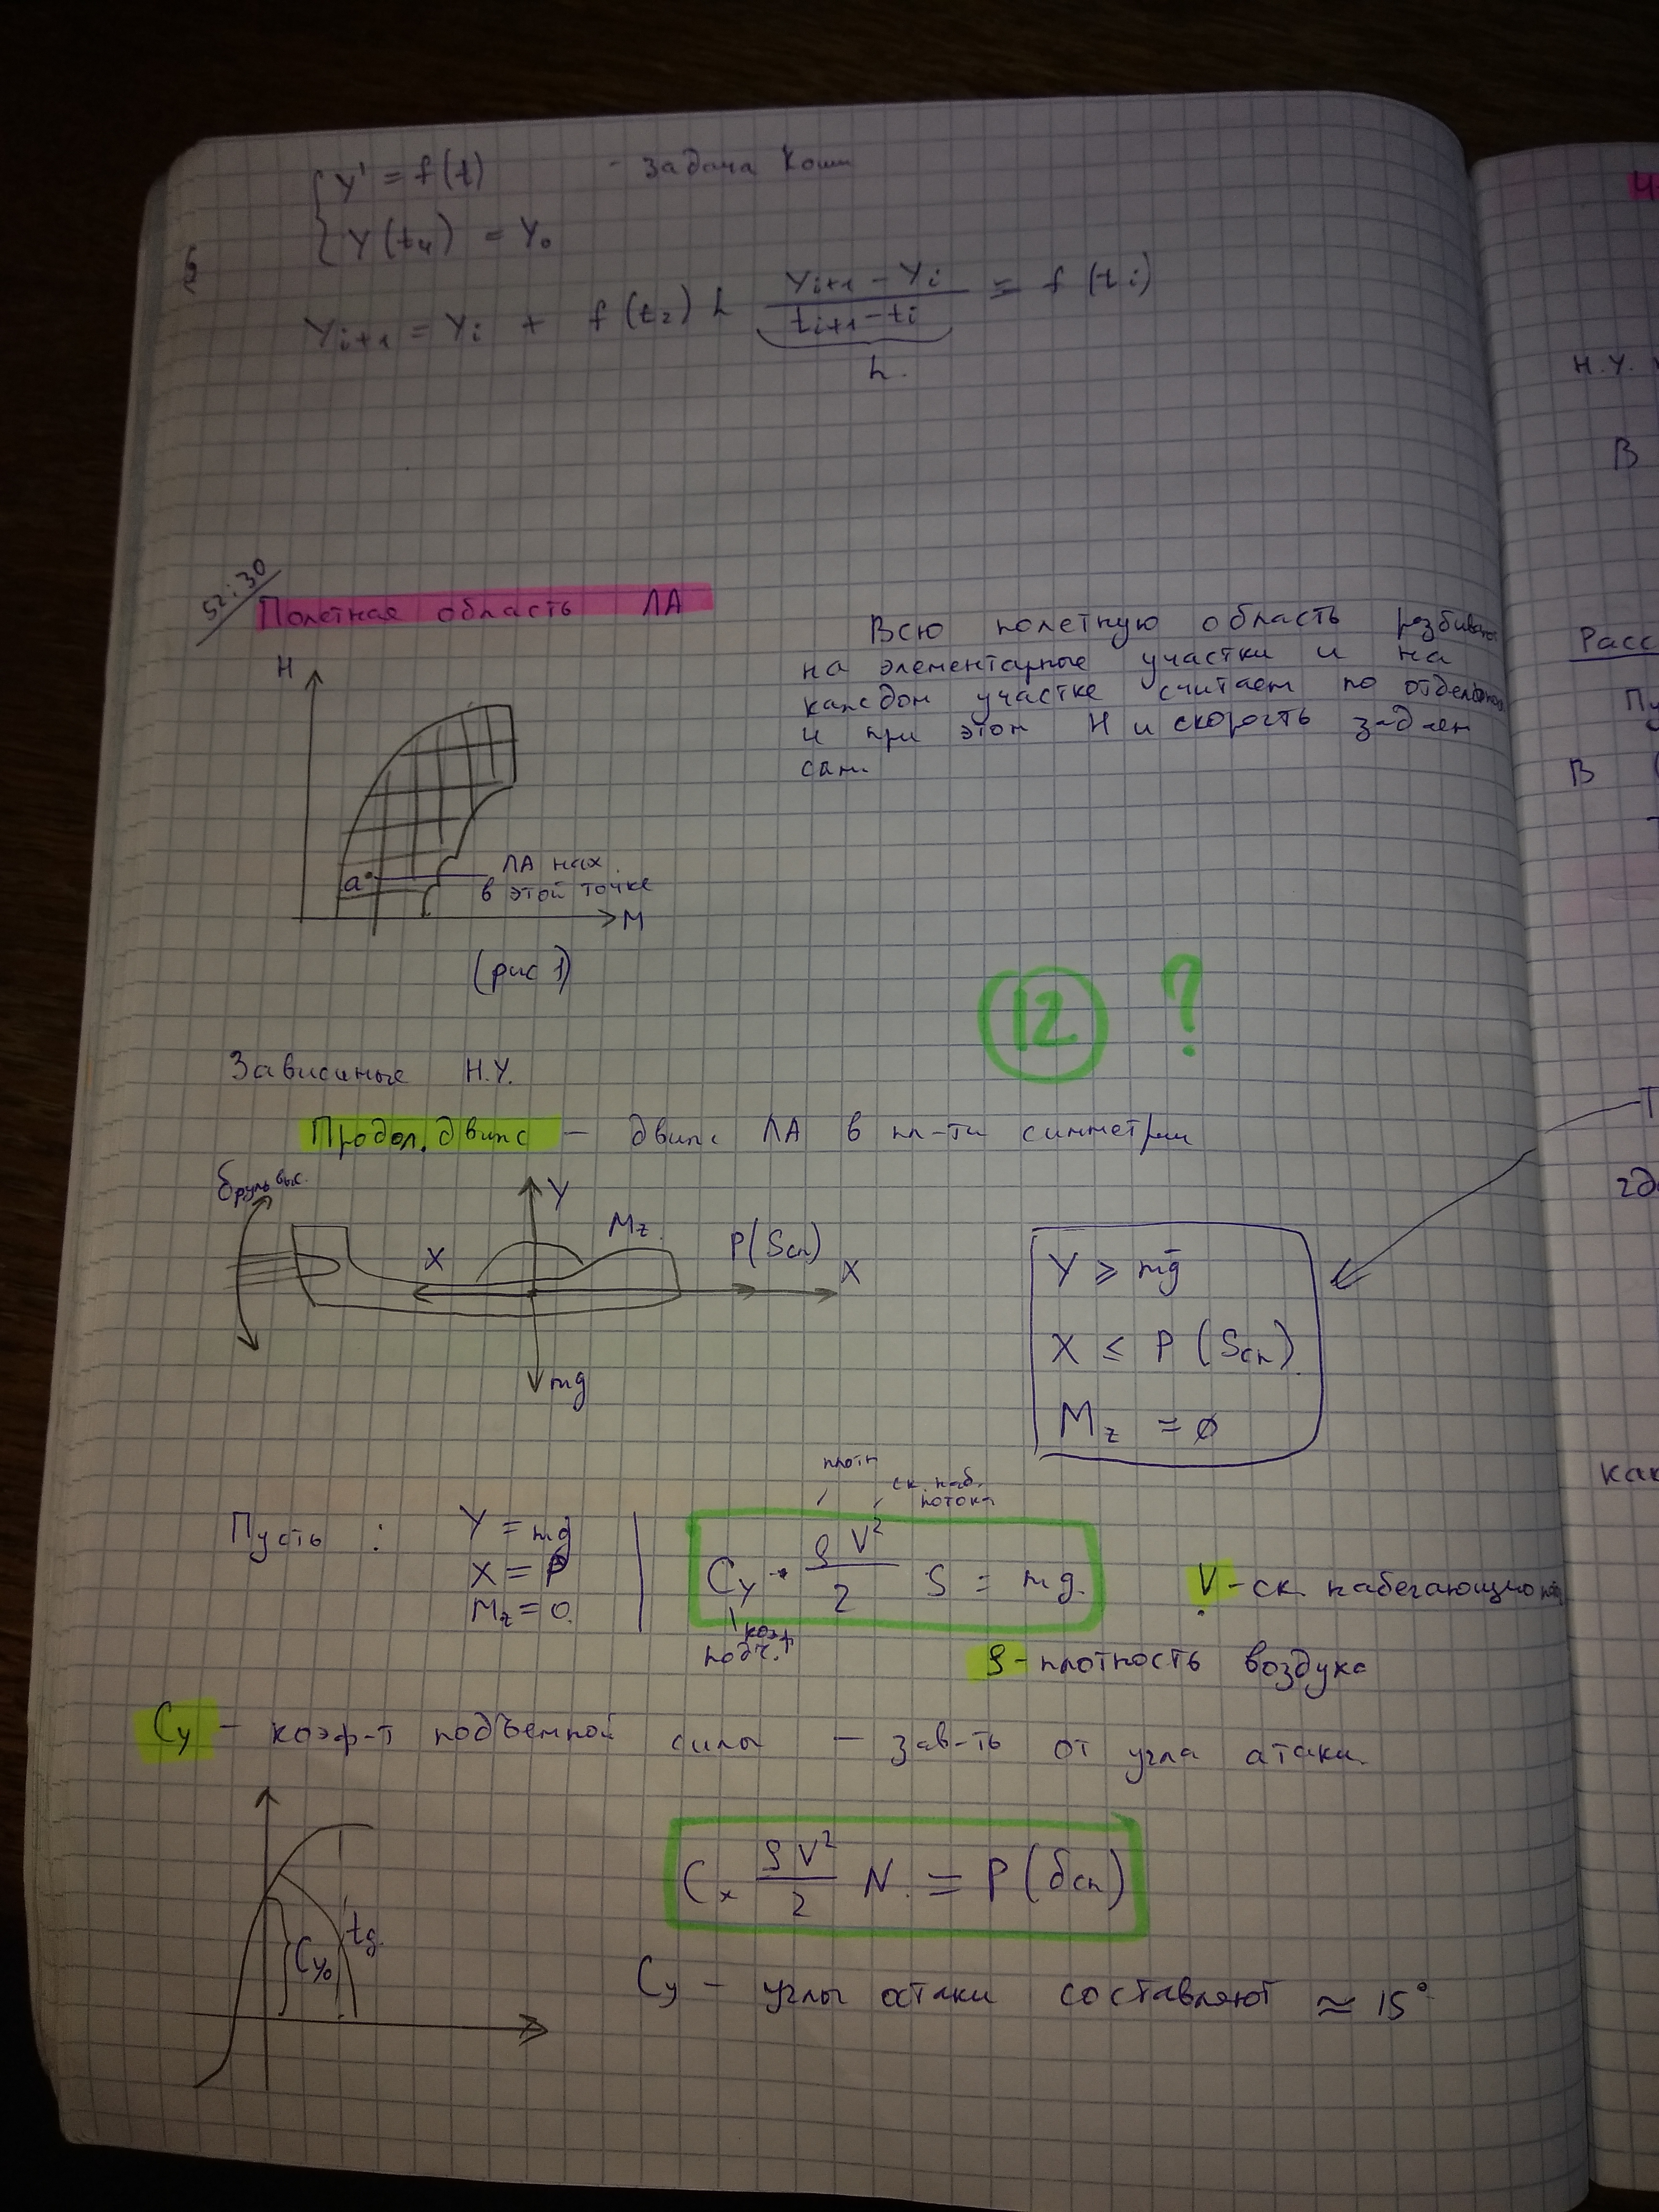 Y' = f(t) - задача Коши
Y(tн) = Y₀
Yi+1 = Yi + f(t₂) h (Yi+1 - Yi)/(ti+1 - ti) = f(ti)
h.
52:30
Полетная область ЛА
Всю полетную область разбивают
на элементарные участки и на
каждом участке считаем по отдельности
и при этом H и скорость задаем
сами.
H
a
ЛА нах.
в этой точке
M
(рис 1)
12 ?
Зависимые Н.У.
Продол. движ - движ ЛА в пл-ти симметрии
δ руль выс.
Y
Mz.
X
P(Sсп)
X
mg
Y ⩾ mg
X ≤ P (Sсп)
Mz = 0
Пусть :
Y = mg
X = P
Mz = 0.
плотн
ск. наб.
потока
Cy · ρV²/2 S = mg.
коэф
подъ.
V - ск. набегающего
ρ - плотность воздуха
Cy - коэф-т подъемной силы - зав-ть от угла атаки.
Cy₀
tg.
Cx ρV²/2 N. = P(δсп)
Cy - углы атаки составляют ≈ 15°
Н.У.
В
Расс
Пу
В
гд
как